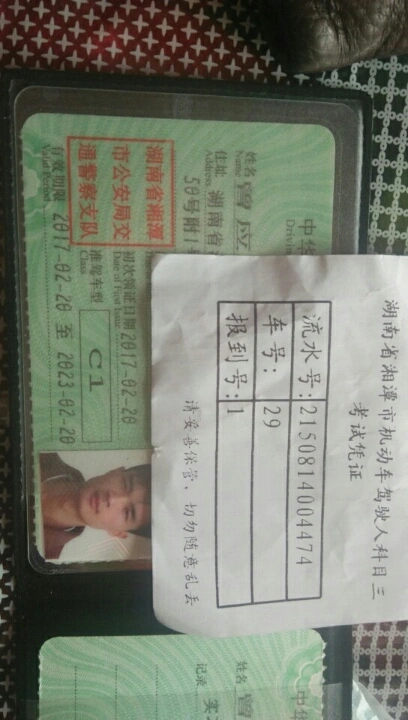 中华
Driving
姓名 曾应
Name
住址 湖南省
Address
50号附1
湖南省湘潭
市公安局交
通警察支队
初次领证日期 2017-02-20
Date of First Issue
准驾车型 C1
Class
有效期限 2017-02-20 至 2023-02-20
Valid Period
湖南省湘潭市机动车驾驶人科目三
考试凭证
流水号: 2150814004474
车号: 29
报到号: 1
请妥善保管,切勿随意乱丢
中华
姓名 曾
记录 实